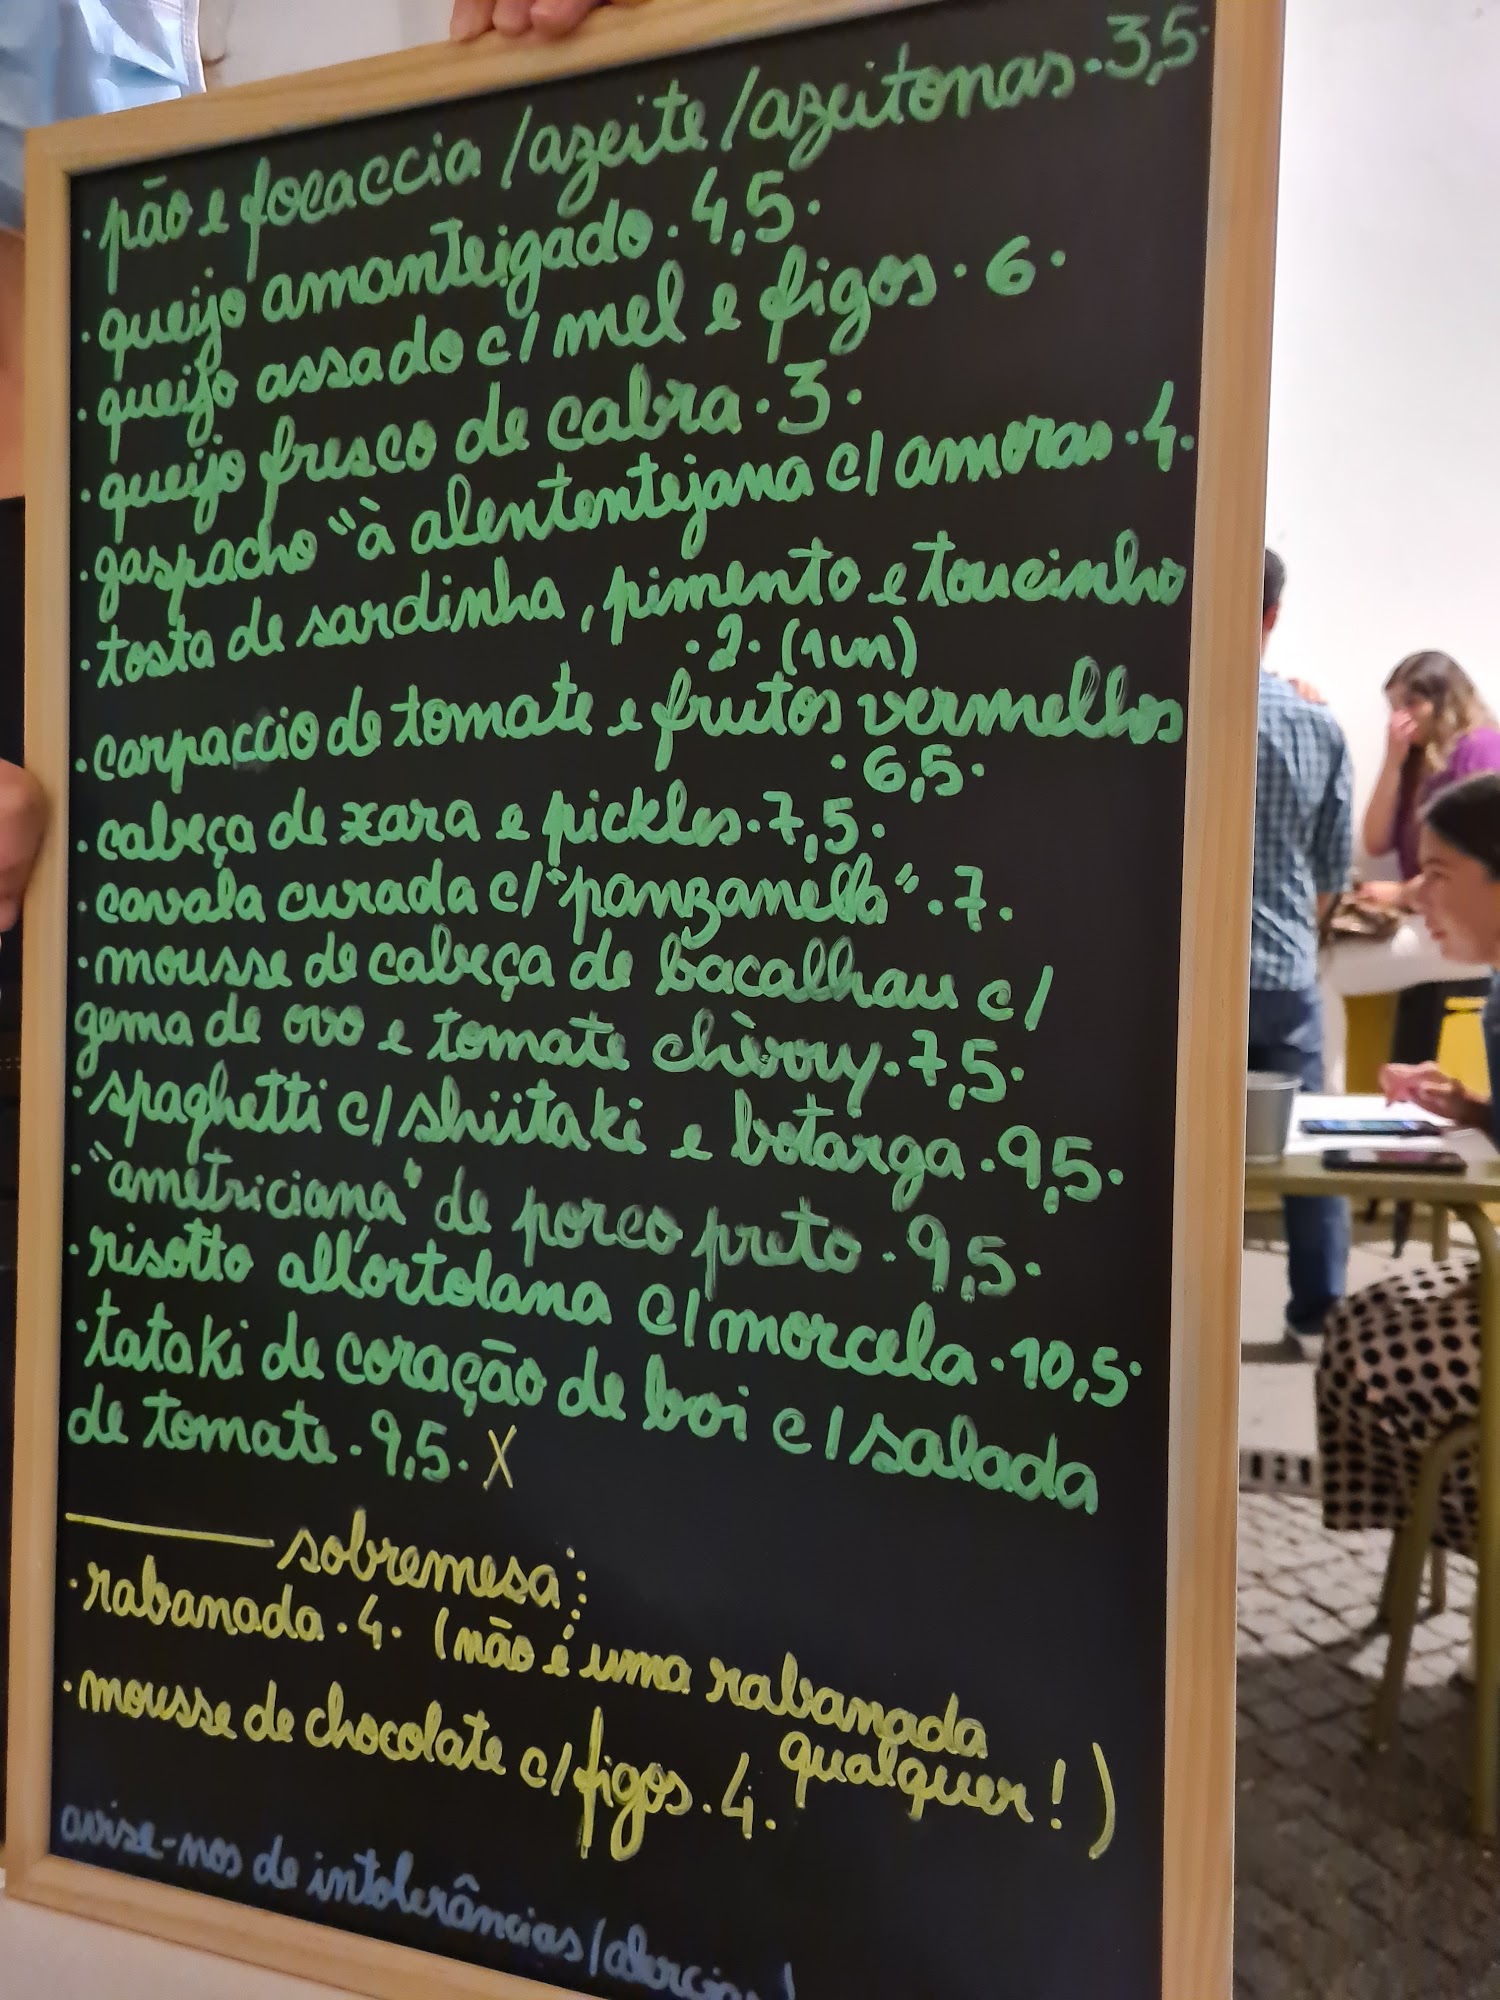 · pão e focaccia /azeite/azeitonas · 3,5 ·
· queijo amanteigado · 4,5 ·
· queijo assado c/ mel e figos · 6 ·
· queijo fresco de cabra · 3 ·
· gaspacho "à alentontejana c/ amoras · 4 ·
· tosta de sardinha, pimento e toucinho
· 2 · (1 un)
· carpaccio de tomate e frutos vermelhos
· 6,5 ·
· cabeça de xara e pickles · 7,5 ·
· cavala curada c/ "panzanella" · 7 ·
· mousse de cabeça de bacalhau c/
gema de ovo e tomate chèrry · 7,5 ·
· spaghetti c/ shiitaki e botarga · 9,5 ·
· "ametriciana" de porco preto · 9,5 ·
· risotto all'ortolana c/ morcela · 10,5 ·
· tataki de coração de boi c/ salada
de tomate · 9,5 · X
sobremesa:
· rabanada · 4 · (não é uma rabanada
qualquer!)
· mousse de chocolate c/ figos · 4 ·
avise-nos de intolerâncias/alergias!